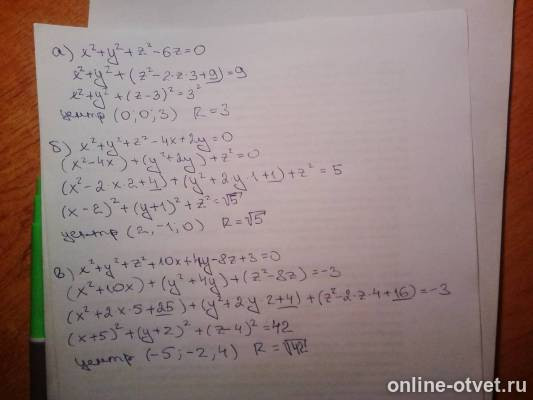 а) x²+y²+z²-6z=0
x²+y²+(z²-2·z·3+9)=9
x²+y²+(z-3)²=3²
центр (0;0;3) R=3
б) x²+y²+z²-4x+2y=0
(x²-4x)+(y²+2y)+z²=0
(x²-2·x·2+4)+(y²+2·y·1+1)+z²=5
(x-2)²+(y+1)²+z²=√5²
центр (2,-1,0) R=√5
в) x²+y²+z²+10x+4y-8z+3=0
(x²+10x)+(y²+4y)+(z²-8z)=-3
(x²+2x·5+25)+(y²+2y·2+4)+(z²-2·z·4+16)=-3
(x+5)²+(y+2)²+(z-4)²=42
центр (-5;-2,4) R=√42
online-otvet.ru